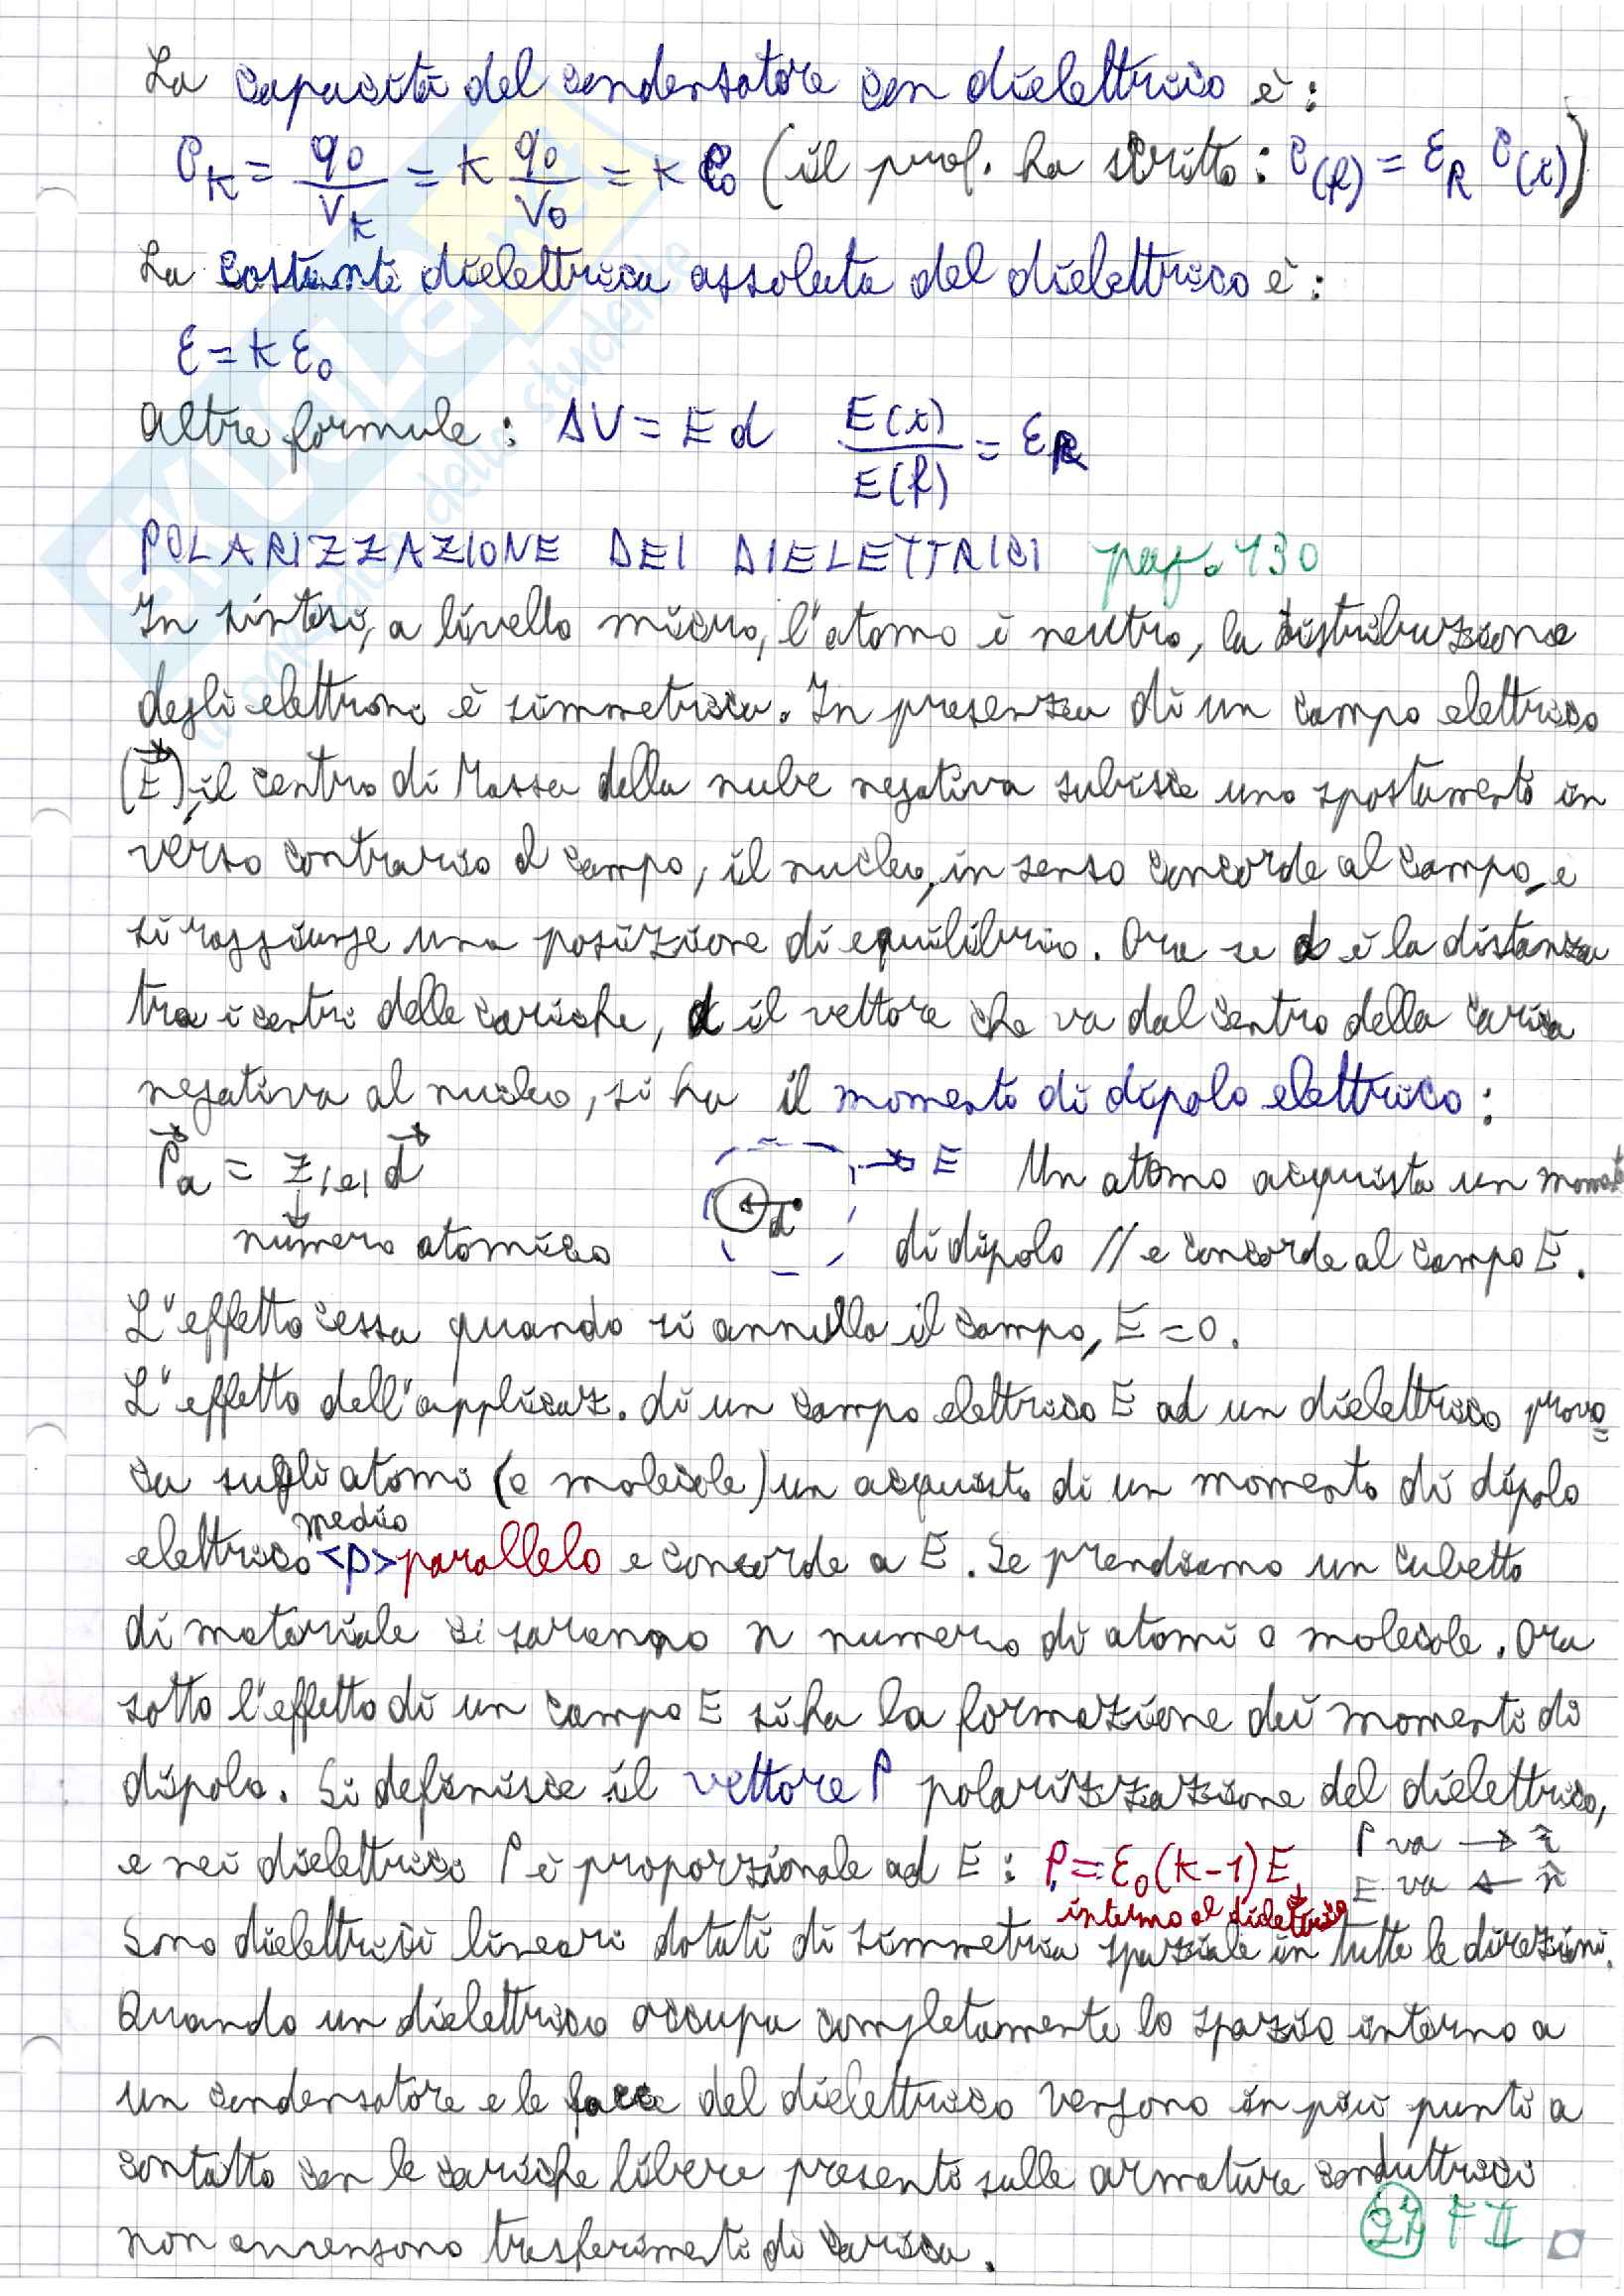 La capacità del condensatore con dielettrico è:
C_K = q0/V_K = K q0/V0 = K C0 (il prof. ha scritto: C(f) = ε_R C(i))
La costante dielettrica assoluta del dielettrico è:
ε = K ε0
Altre formule: ΔV = E d E(i)/E(f) = ε_R
POLARIZZAZIONE DEI DIELETTRICI pag. 130
In sintesi, a livello micro, l'atomo è neutro, la distribuzione
degli elettroni è simmetrica. In presenza di un campo elettrico
(E⃗), il centro di Massa della nube negativa subisce uno spostamento in
verso contrario al campo, il nucleo, in senso concorde al campo, e
si raggiunge una posizione di equilibrio. Ora se d è la distanza
tra i centri delle cariche, d il vettore che va dal centro della carica
negativa al nucleo, si ha il momento di dipolo elettrico:
P⃗a = Z|e| d⃗ → E Un atomo acquista un momento
↓ d
numero atomico di dipolo // e concorde al campo E.
L'effetto cessa quando si annulla il campo, E = 0.
L'effetto dell'applicaz. di un campo elettrico E ad un dielettrico provo=
ca sugli atomi (o molecole) un acquisto di un momento di dipolo
medio
elettrico <p> parallelo e concorde a E. Se prendiamo un cubetto
di materiale ci saranno n numero di atomi o molecole. Ora
sotto l'effetto di un campo E si ha la formazione dei momenti di
dipolo. Si definisce il vettore P polarizzazione del dielettrico,
e nei dielettrici P è proporzionale ad E: P = ε0(K-1)E P va →
E va ←
interno al dielettrico
Sono dielettrici lineari dotati di simmetria spaziale in tutte le direzioni.
Quando un dielettrico occupa completamente lo spazio interno a
un condensatore e le facce del dielettrico vengono in più punti a
contatto con le cariche libere presenti sulle armature conduttrici
non avvengono trasferimenti di carica.
27 F II